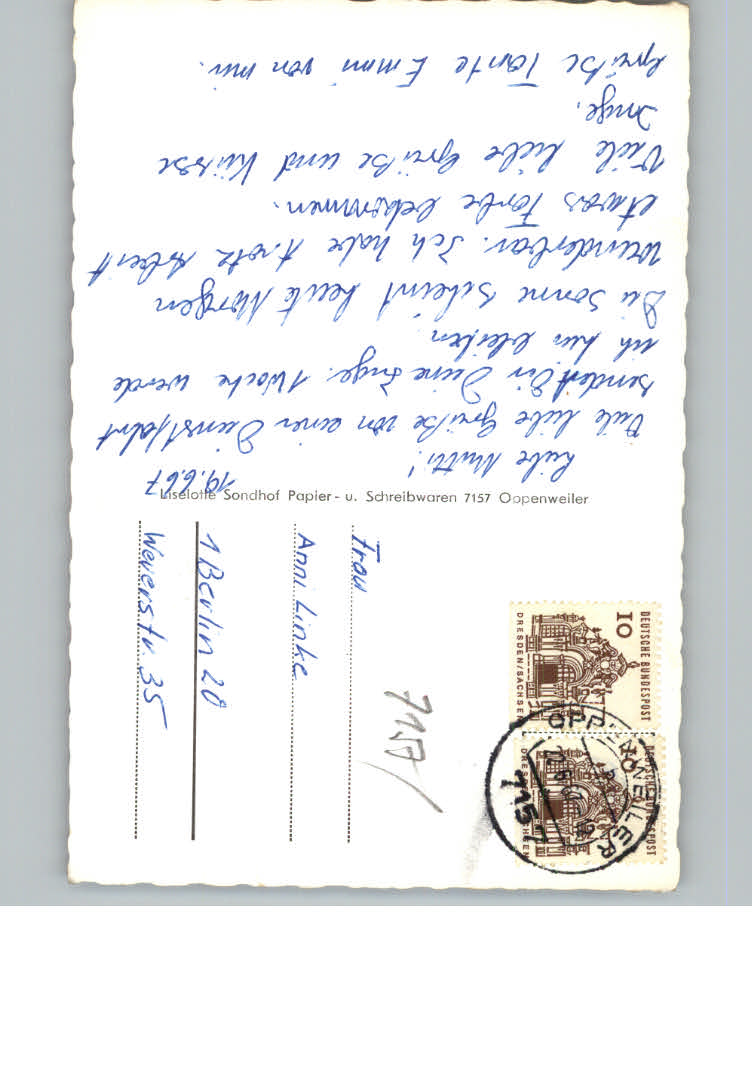 19.6.67
Liebe Mutti!
Viele liebe Grüße von einer Dienstfahrt
sendet Dir Deine Inge. 1 Woche werde
ich hier bleiben.
Die Sonne scheint heute Morgen
wunderbar. Ich habe trotz Arbeit
etwas Farbe bekommen.
Viele liebe Grüße und Küsse
Inge.
Grüße Tante Emmi von mir.
Liselotte Sondhof Papier- u. Schreibwaren 7157 Oppenweiler
Frau
Anni Linke
1 Berlin 20
Weverstr. 35
7157
DEUTSCHE BUNDESPOST
10
DRESDEN/SACHSEN
DEUTSCHE BUNDESPOST
10
DRESDEN/SACHSEN
OPPENWEILER
7157